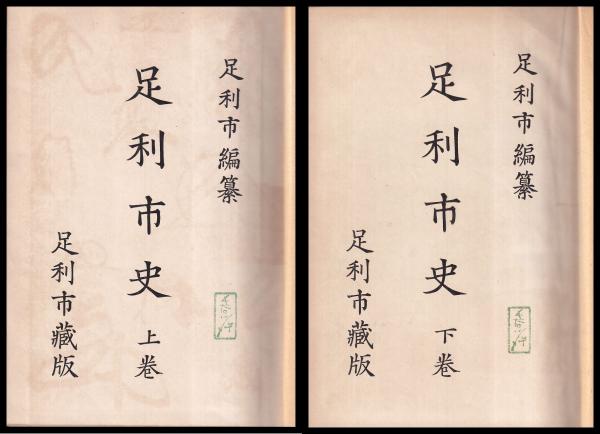 足利市編纂
足利市史 上巻
足利市藏版
足利市編纂
足利市史 下巻
足利市藏版